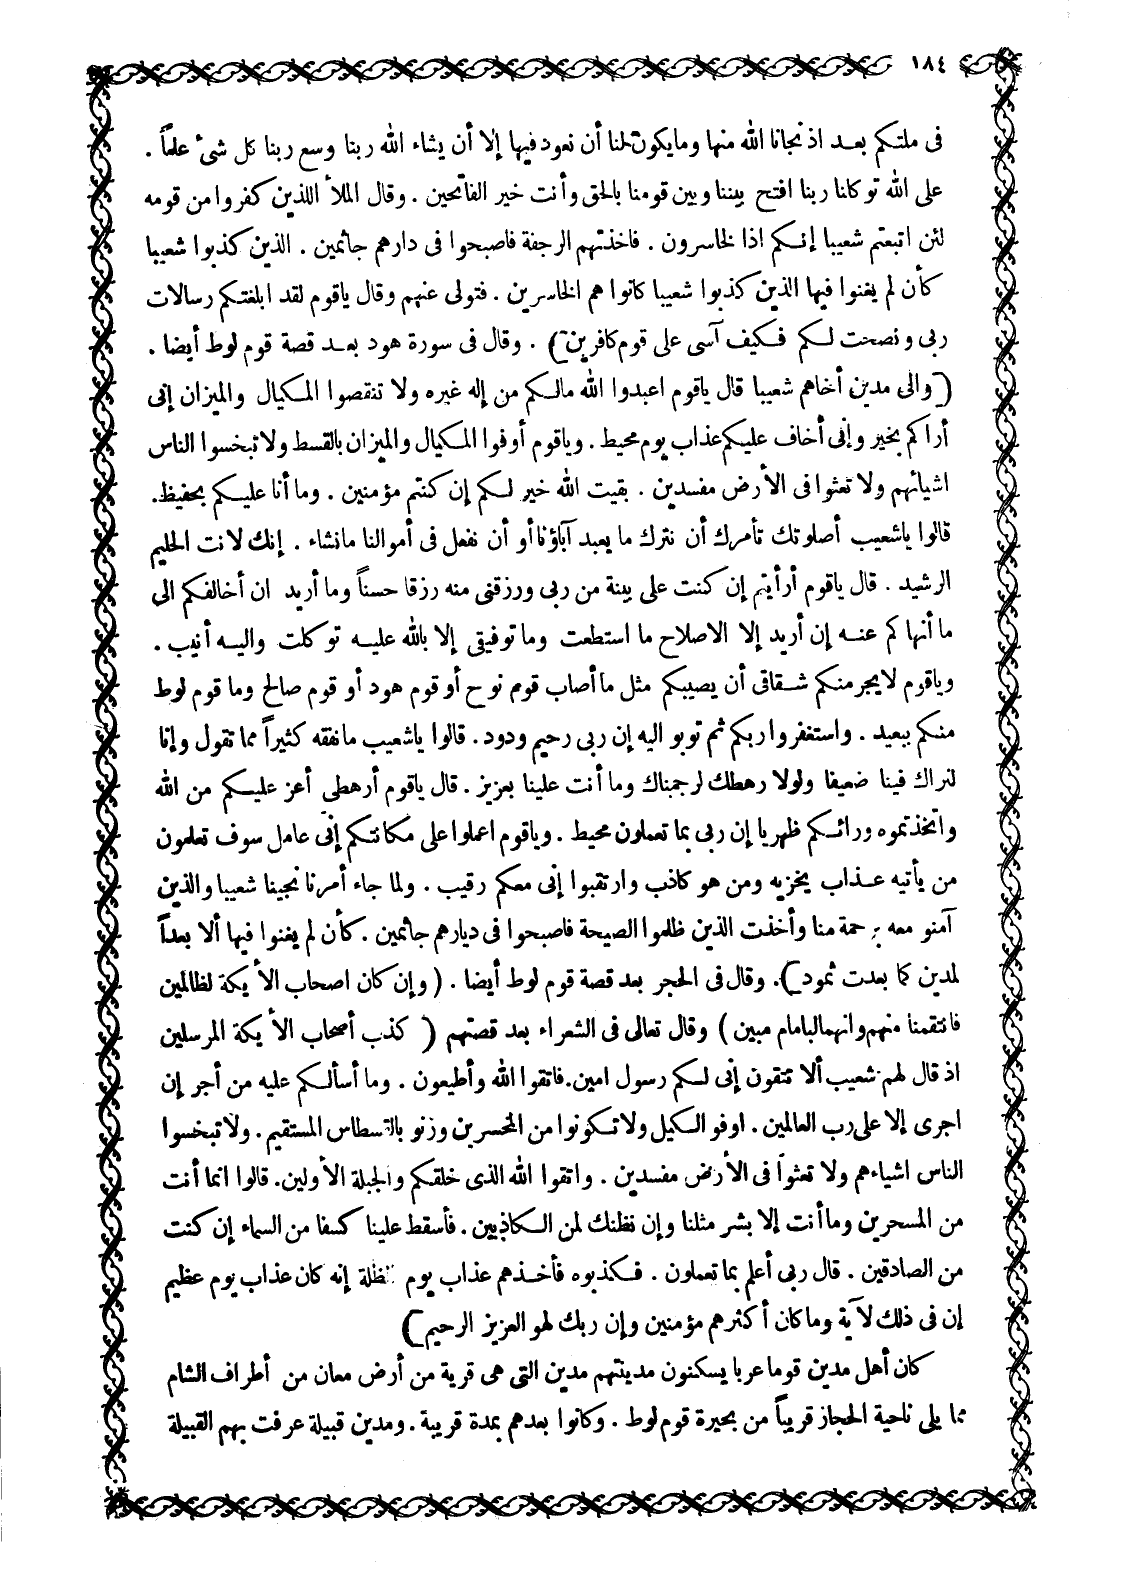 ١٨٤
فى ملتكم بعد اذ نجانا الله منها وما يكون لنا أن نعود فيها إلا أن يشاء الله ربنا وسع ربنا كل شئ علماً .
على الله توكلنا ربنا افتح بيننا وبين قومنا بالحق وأنت خير الفاتحين . وقال الملأ اللذين كفروا من قومه
لئن اتبعتم شعيبا إنكم اذا لخاسرون . فاخذتهم الرجفة فاصبحوا فى دارهم جاثمين . الذين كذبوا شعيبا
كأن لم يغنوا فيها الذين كذبوا شعيبا كانوا هم الخاسرين . فتولى عنهم وقال ياقوم لقد ابلغتكم رسالات
ربى ونصحت لكم فكيف آسى على قوم كافرين ) . وقال فى سورة هود بعد قصة قوم لوط أيضا .
( والى مدين أخاهم شعيبا قال ياقوم اعبدوا الله مالكم من إله غيره ولا تنقصوا المكيال والميزان إنى
أراكم بخير وإنى أخاف عليكم عذاب يوم محيط . وياقوم أوفوا المكيال والميزان بالقسط ولا تبخسوا الناس
اشيائهم ولا تعثوا فى الأرض مفسدين . بقيت الله خير لكم إن كنتم مؤمنين . وما أنا عليكم بحفيظ.
قالوا ياشعيب أصلوتك تأمرك أن نترك ما يعبد آباؤنا أو أن نفعل فى أموالنا مانشاء . إنك لانت الحليم
الرشيد . قال ياقوم أرأيتم إن كنت على بينة من ربى ورزقنى منه رزقا حسناً وما أريد ان أخالفكم الى
ما أنهاكم عنه إن أريد إلا الاصلاح ما استطعت وما توفيقى إلا بالله عليه توكلت واليه أنيب .
وياقوم لايجرمنكم شقاقى أن يصيبكم مثل ما أصاب قوم نوح أو قوم هود أو قوم صالح وما قوم لوط
منكم ببعيد . واستغفروا ربكم ثم توبو اليه إن ربى رحيم ودود . قالوا ياشعيب مانفقه كثيراً مما تقول وإنا
لنراك فينا ضعيفا ولولا رهطك لرجمناك وما أنت علينا بعزيز . قال ياقوم أرهطى أعز عليكم من الله
واتخذتموه ورائكم ظهريا إن ربى بما تعملون محيط . وياقوم اعملوا على مكانتكم إنى عامل سوف تعلمون
من يأتيه عذاب يخزيه ومن هو كاذب وارتقبوا إنى معكم رقيب . ولما جاء أمرنا نجينا شعيبا والذين
آمنو معه برحمة منا وأخذت الذين ظلموا الصيحة فاصبحوا فى ديارهم جاثمين . كأن لم يغنوا فيها ألا بعداً
لمدين كما بعدت ثمود ) . وقال فى الحجر بعد قصة قوم لوط أيضا . ( وإن كان اصحاب الأيكة لظالمين
فانتقمنا منهم وانهما لبامام مبين ) وقال تعالى فى الشعراء بعد قصتهم ( كذب أصحاب الأيكة المرسلين
اذ قال لهم شعيب ألا تتقون إنى لكم رسول امين . فاتقوا الله وأطيعون . وما أسألكم عليه من أجر إن
اجرى إلا على رب العالمين . اوفو الكيل ولا تكونوا من المخسرين وزنو بالقسطاس المستقيم . ولا تبخسوا
الناس اشياءهم ولا تعثوا فى الأرض مفسدين . واتقوا الله الذى خلقكم والجبلة الأولين . قالوا انما أنت
من المسحرين وما أنت إلا بشر مثلنا وإن نظنك لمن الكاذبين . فأسقط علينا كسفا من السماء إن كنت
من الصادقين . قال ربى أعلم بما تعملون . فكذبوه فأخذهم عذاب يوم الظلة إنه كان عذاب يوم عظيم
إن فى ذلك لآية وما كان أكثرهم مؤمنين وإن ربك لهو العزيز الرحيم )
كان أهل مدين قوما عربا يسكنون مدينتهم مدين التى هى قرية من أرض معان من أطراف الشام
مما يلى ناحية الحجاز قريباً من بحيرة قوم لوط . وكانوا بعدهم بمدة قريبة . ومدين قبيلة عرفت بهم القبيلة